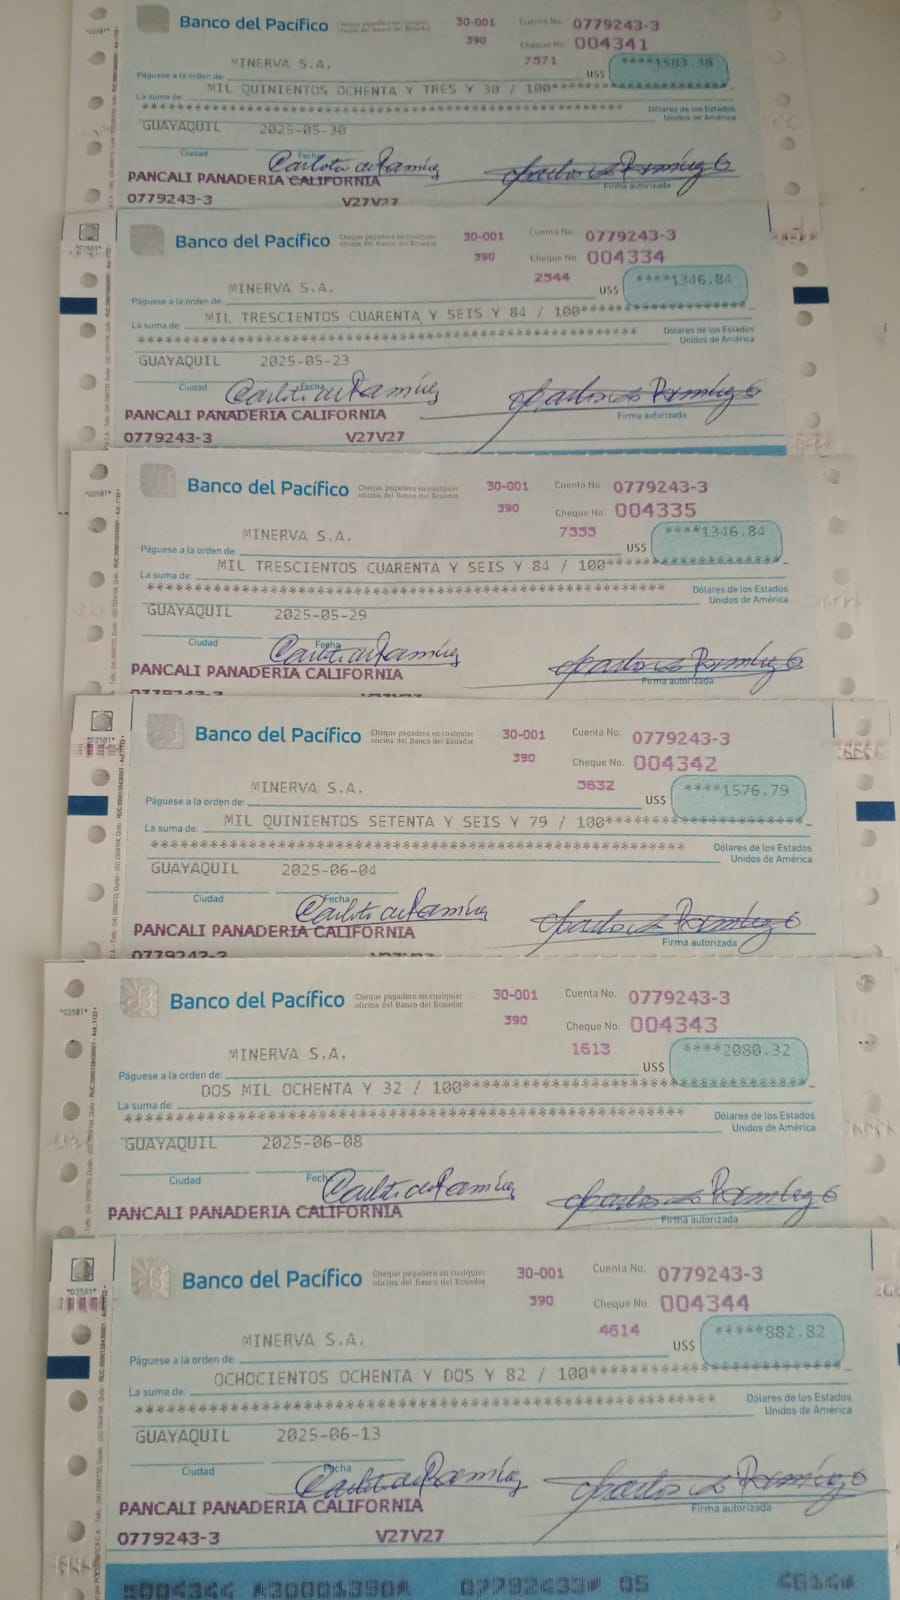 Banco del Pacífico Cheque pagadero en cualquier oficina del Banco del Ecuador 30-001 Cuenta No. 0779243-3
390 Cheque No. 004341
MINERVA S.A. 7571 ****1583.38
Páguese a la orden de: US$
MIL QUINIENTOS OCHENTA Y TRES Y 38 / 100**
La suma de:
Dólares de los Estados
Unidos de América
GUAYAQUIL 2025-05-30
Ciudad Fecha
PANCALI PANADERIA CALIFORNIA Firma autorizada
0779243-3 V27V27
Banco del Pacífico Cheque pagadero en cualquier oficina del Banco del Ecuador 30-001 Cuenta No. 0779243-3
390 Cheque No. 004334
MINERVA S.A. 2544 ****1346.84
Páguese a la orden de: US$
MIL TRESCIENTOS CUARENTA Y SEIS Y 84 / 100**
La suma de:
Dólares de los Estados
Unidos de América
GUAYAQUIL 2025-05-23
Ciudad Fecha
PANCALI PANADERIA CALIFORNIA Firma autorizada
0779243-3 V27V27
Banco del Pacífico Cheque pagadero en cualquier oficina del Banco del Ecuador 30-001 Cuenta No. 0779243-3
390 Cheque No. 004335
MINERVA S.A. ****1346.84
Páguese a la orden de: US$
MIL TRESCIENTOS CUARENTA Y SEIS Y 84 / 100**
La suma de:
Dólares de los Estados
Unidos de América
GUAYAQUIL 2025-05-29
Ciudad Fecha
PANCALI PANADERIA CALIFORNIA Firma autorizada
Banco del Pacífico Cheque pagadero en cualquier oficina del Banco del Ecuador 30-001 Cuenta No. 0779243-3
390 Cheque No. 004342
MINERVA S.A. ****1576.79
Páguese a la orden de: US$
MIL QUINIENTOS SETENTA Y SEIS Y 79 / 100**
La suma de:
Dólares de los Estados
Unidos de América
GUAYAQUIL 2025-06-04
Ciudad Fecha
PANCALI PANADERIA CALIFORNIA Firma autorizada
Banco del Pacífico Cheque pagadero en cualquier oficina del Banco del Ecuador 30-001 Cuenta No. 0779243-3
390 Cheque No. 004343
MINERVA S.A. 1613 ****2080.32
Páguese a la orden de: US$
DOS MIL OCHENTA Y 32 / 100**
La suma de:
Dólares de los Estados
Unidos de América
GUAYAQUIL 2025-06-08
Ciudad Fecha
PANCALI PANADERIA CALIFORNIA Firma autorizada
Banco del Pacífico Cheque pagadero en cualquier oficina del Banco del Ecuador 30-001 Cuenta No. 0779243-3
390 Cheque No. 004344
MINERVA S.A. 4614 *****882.82
Páguese a la orden de: US$
OCHOCIENTOS OCHENTA Y DOS Y 82 / 100**
La suma de:
Dólares de los Estados
Unidos de América
GUAYAQUIL 2025-06-13
Ciudad Fecha
PANCALI PANADERIA CALIFORNIA Firma autorizada
0779243-3 V27V27